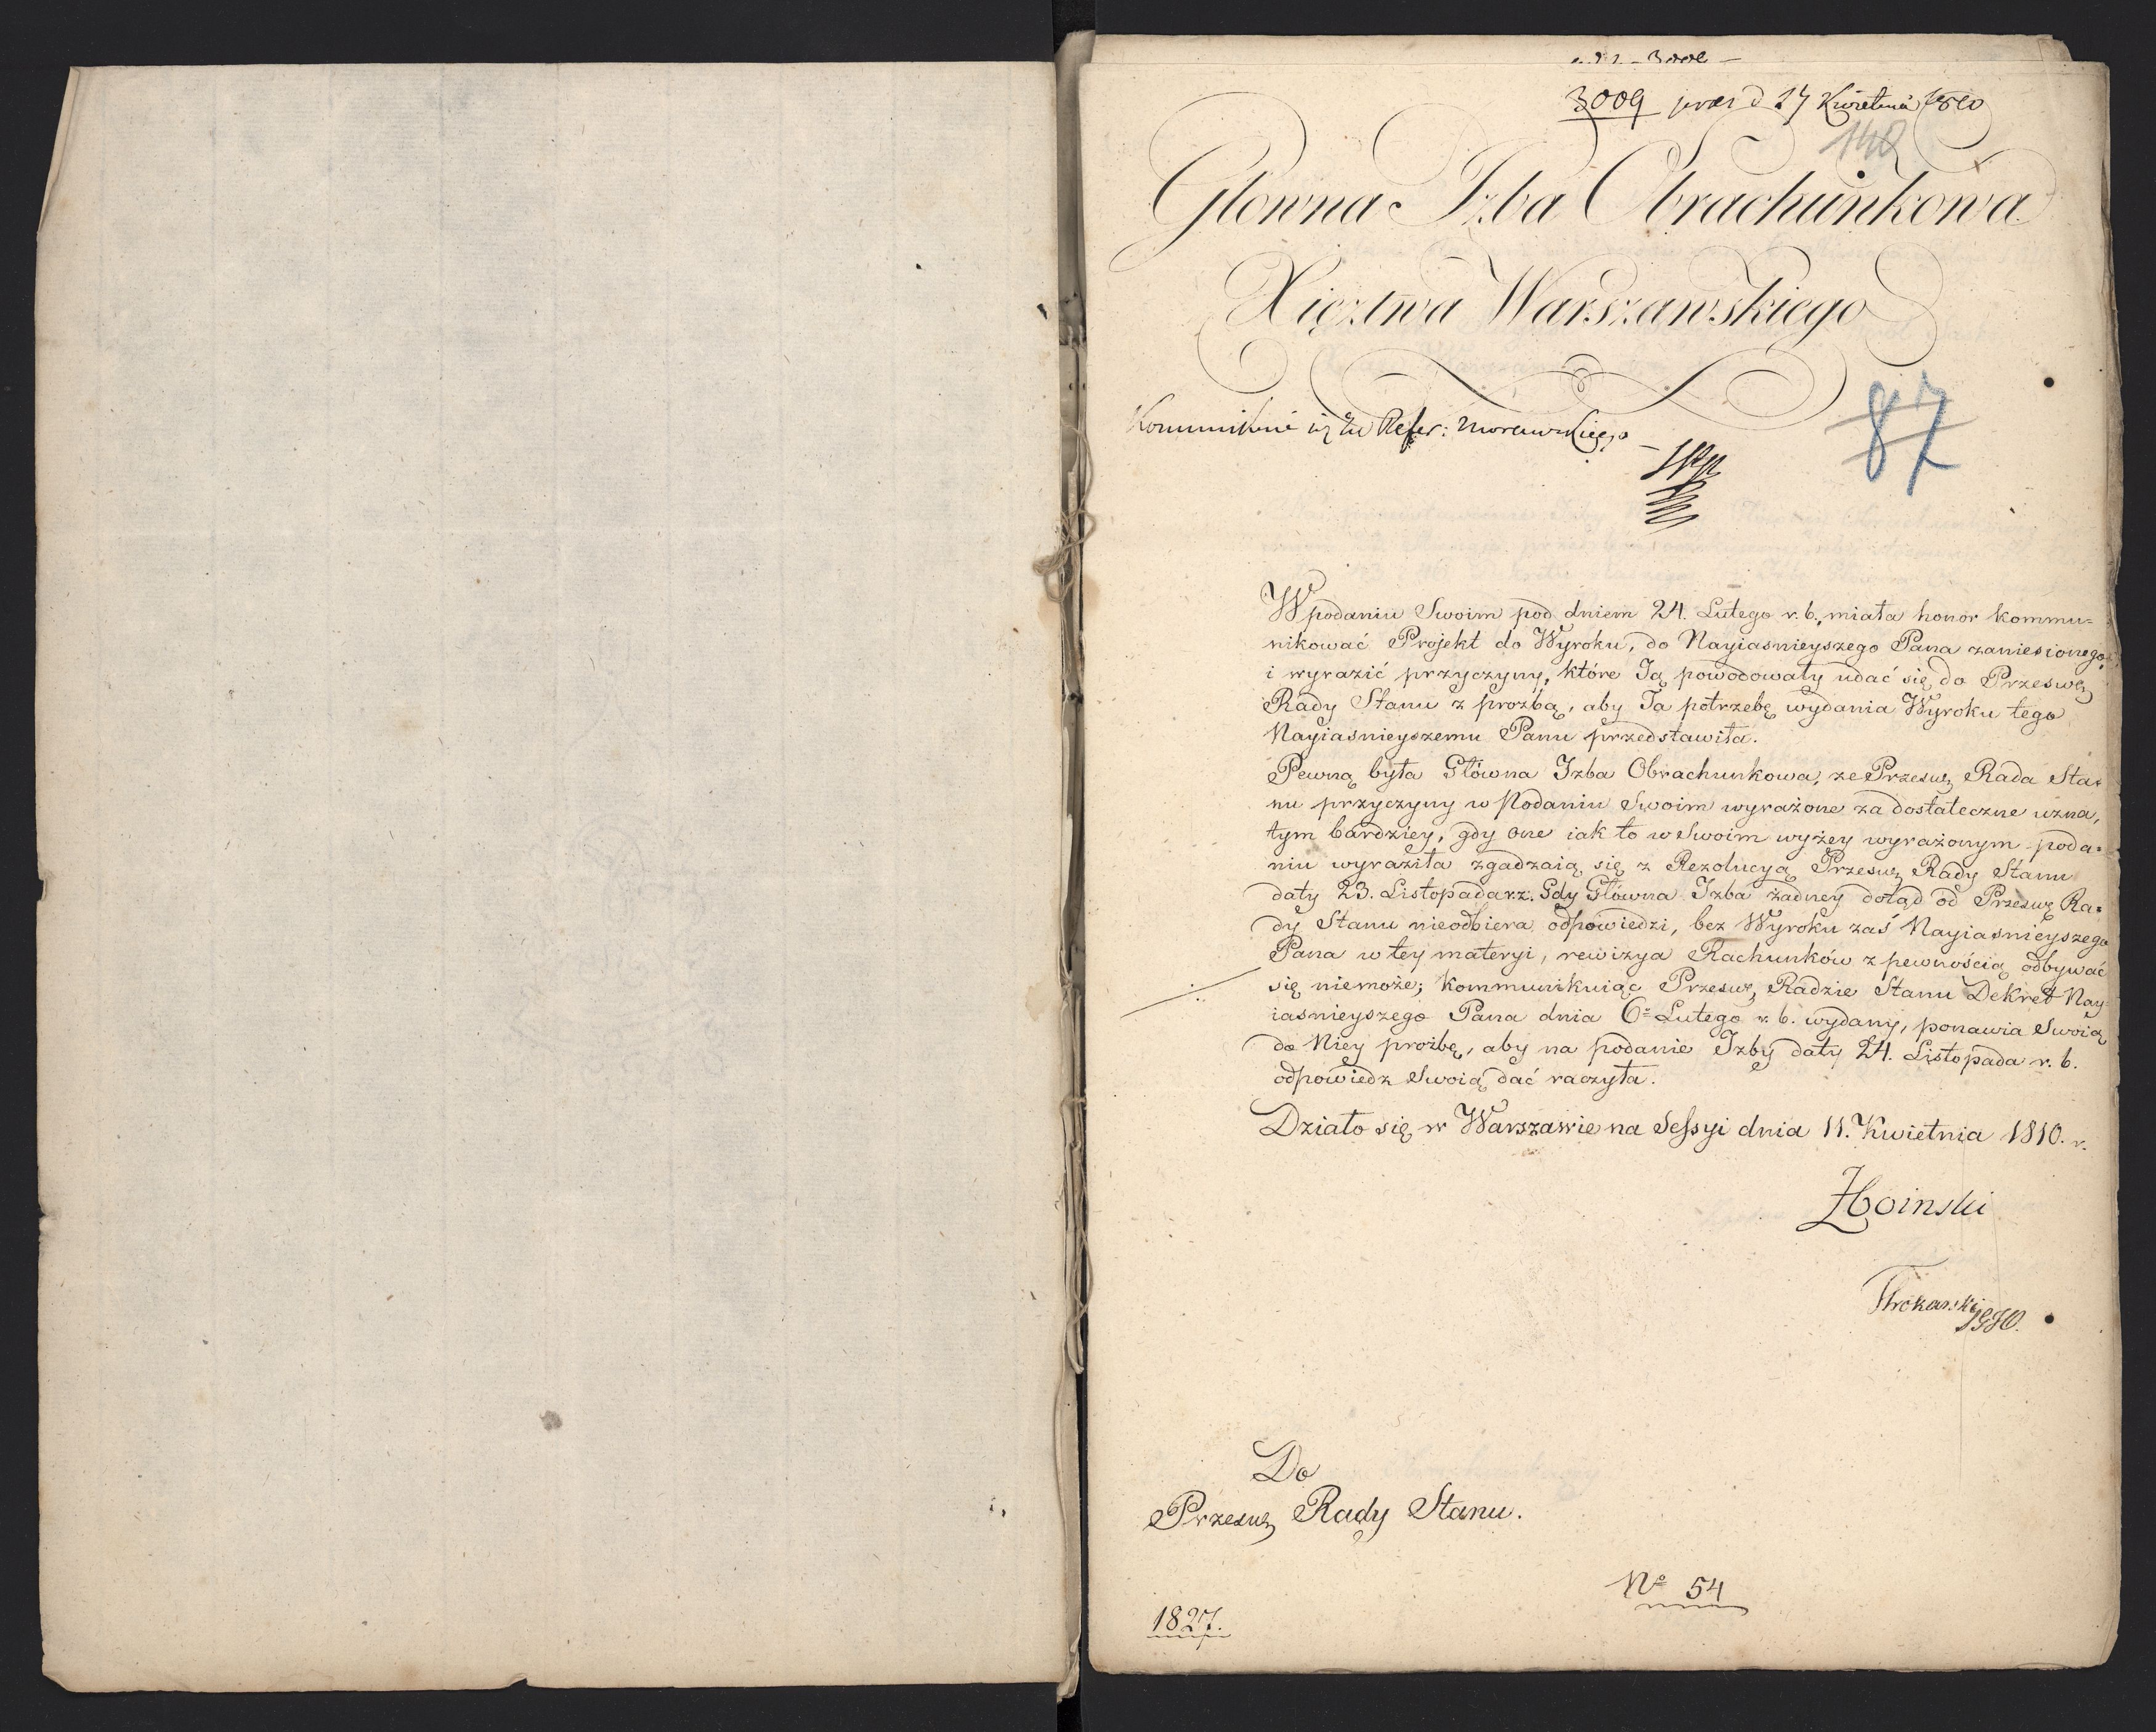 3009 præs d 27 Kwietnia 1810
140
Głowna Izba Obrachunkowa
Xięztwa Warszawskiego
87
Refer: Morawskiego
W podaniu Swoim pod dniem 24. Lutego r. b. miała honor kommu=
nikować Projekt do Wyroku, do Nayiasnieyszego Pana zaniesionego,
i wyrazić przyczyny, które Ją powodowały udać się do Przesw.
Rady Stanu z prozbą, aby Ta potrzebę wydania Wyroku tego
Nayiasnieyszemu Panu przedstawiła.
Pewną była Główna Izba Obrachunkowa, że Przesw. Rada Sta=
nu przyczyny w Podaniu Swoim wyrażone za dostateczne uzna,
tym bardziey, gdy one iak to w Swoim wyżey wyrażonym poda=
niu wyraziła zgadzaią się z Rezolucyą Przesw. Rady Stanu
daty 23. Listopada r. z. Gdy Główna Izba żadney dotąd od Przesw. Ra=
dy Stanu nieodbiera odpowiedzi, bez Wyroku zaś Nayiasnieyszego
Pana w tey materyi, rewizya Rachunków z pewnością odbywać
się niemoże; kommunikuiąc Przesw. Radzie Stanu Dekret Nay=
iasnieyszego Pana dnia 6º Lutego r. b. wydany, ponawia Swoią
do Niey prozbę, aby na podanie Izby daty 24. Listopada r. b.
odpowiedz Swoią dać raczyła.
Działo się w Warszawie na Sessyi dnia 11. Kwietnia 1810. r.
Do
Przesw. Rady Stanu.
Nº 54
1827.